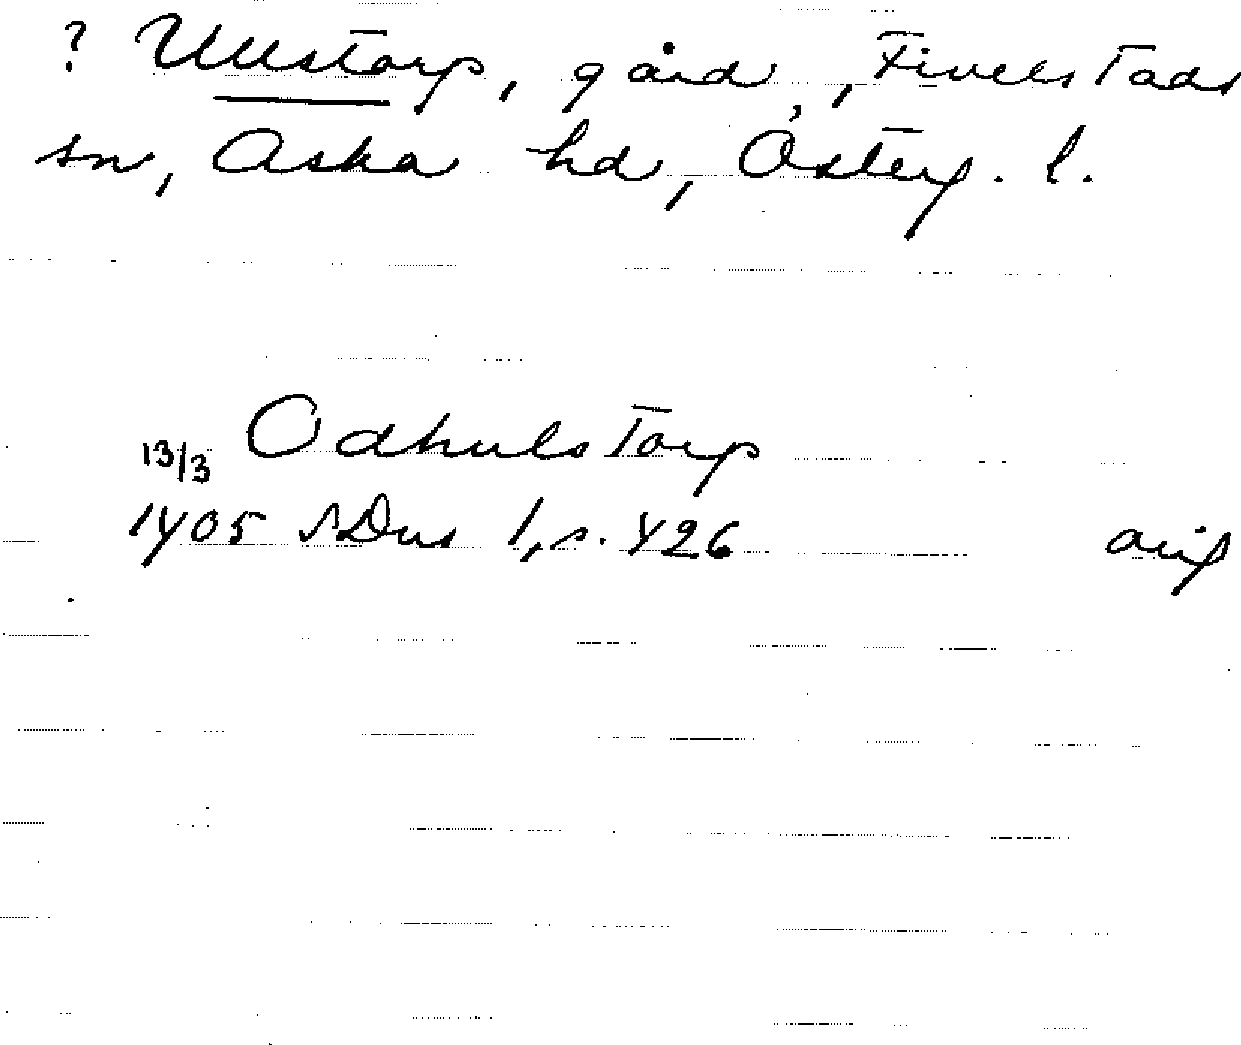 ? Ullstorp, gård, Fivelstads
sn, Aska hd, Österg. l.
13/3 Odhulstorp
1405 SDns 1, s. 426 orig